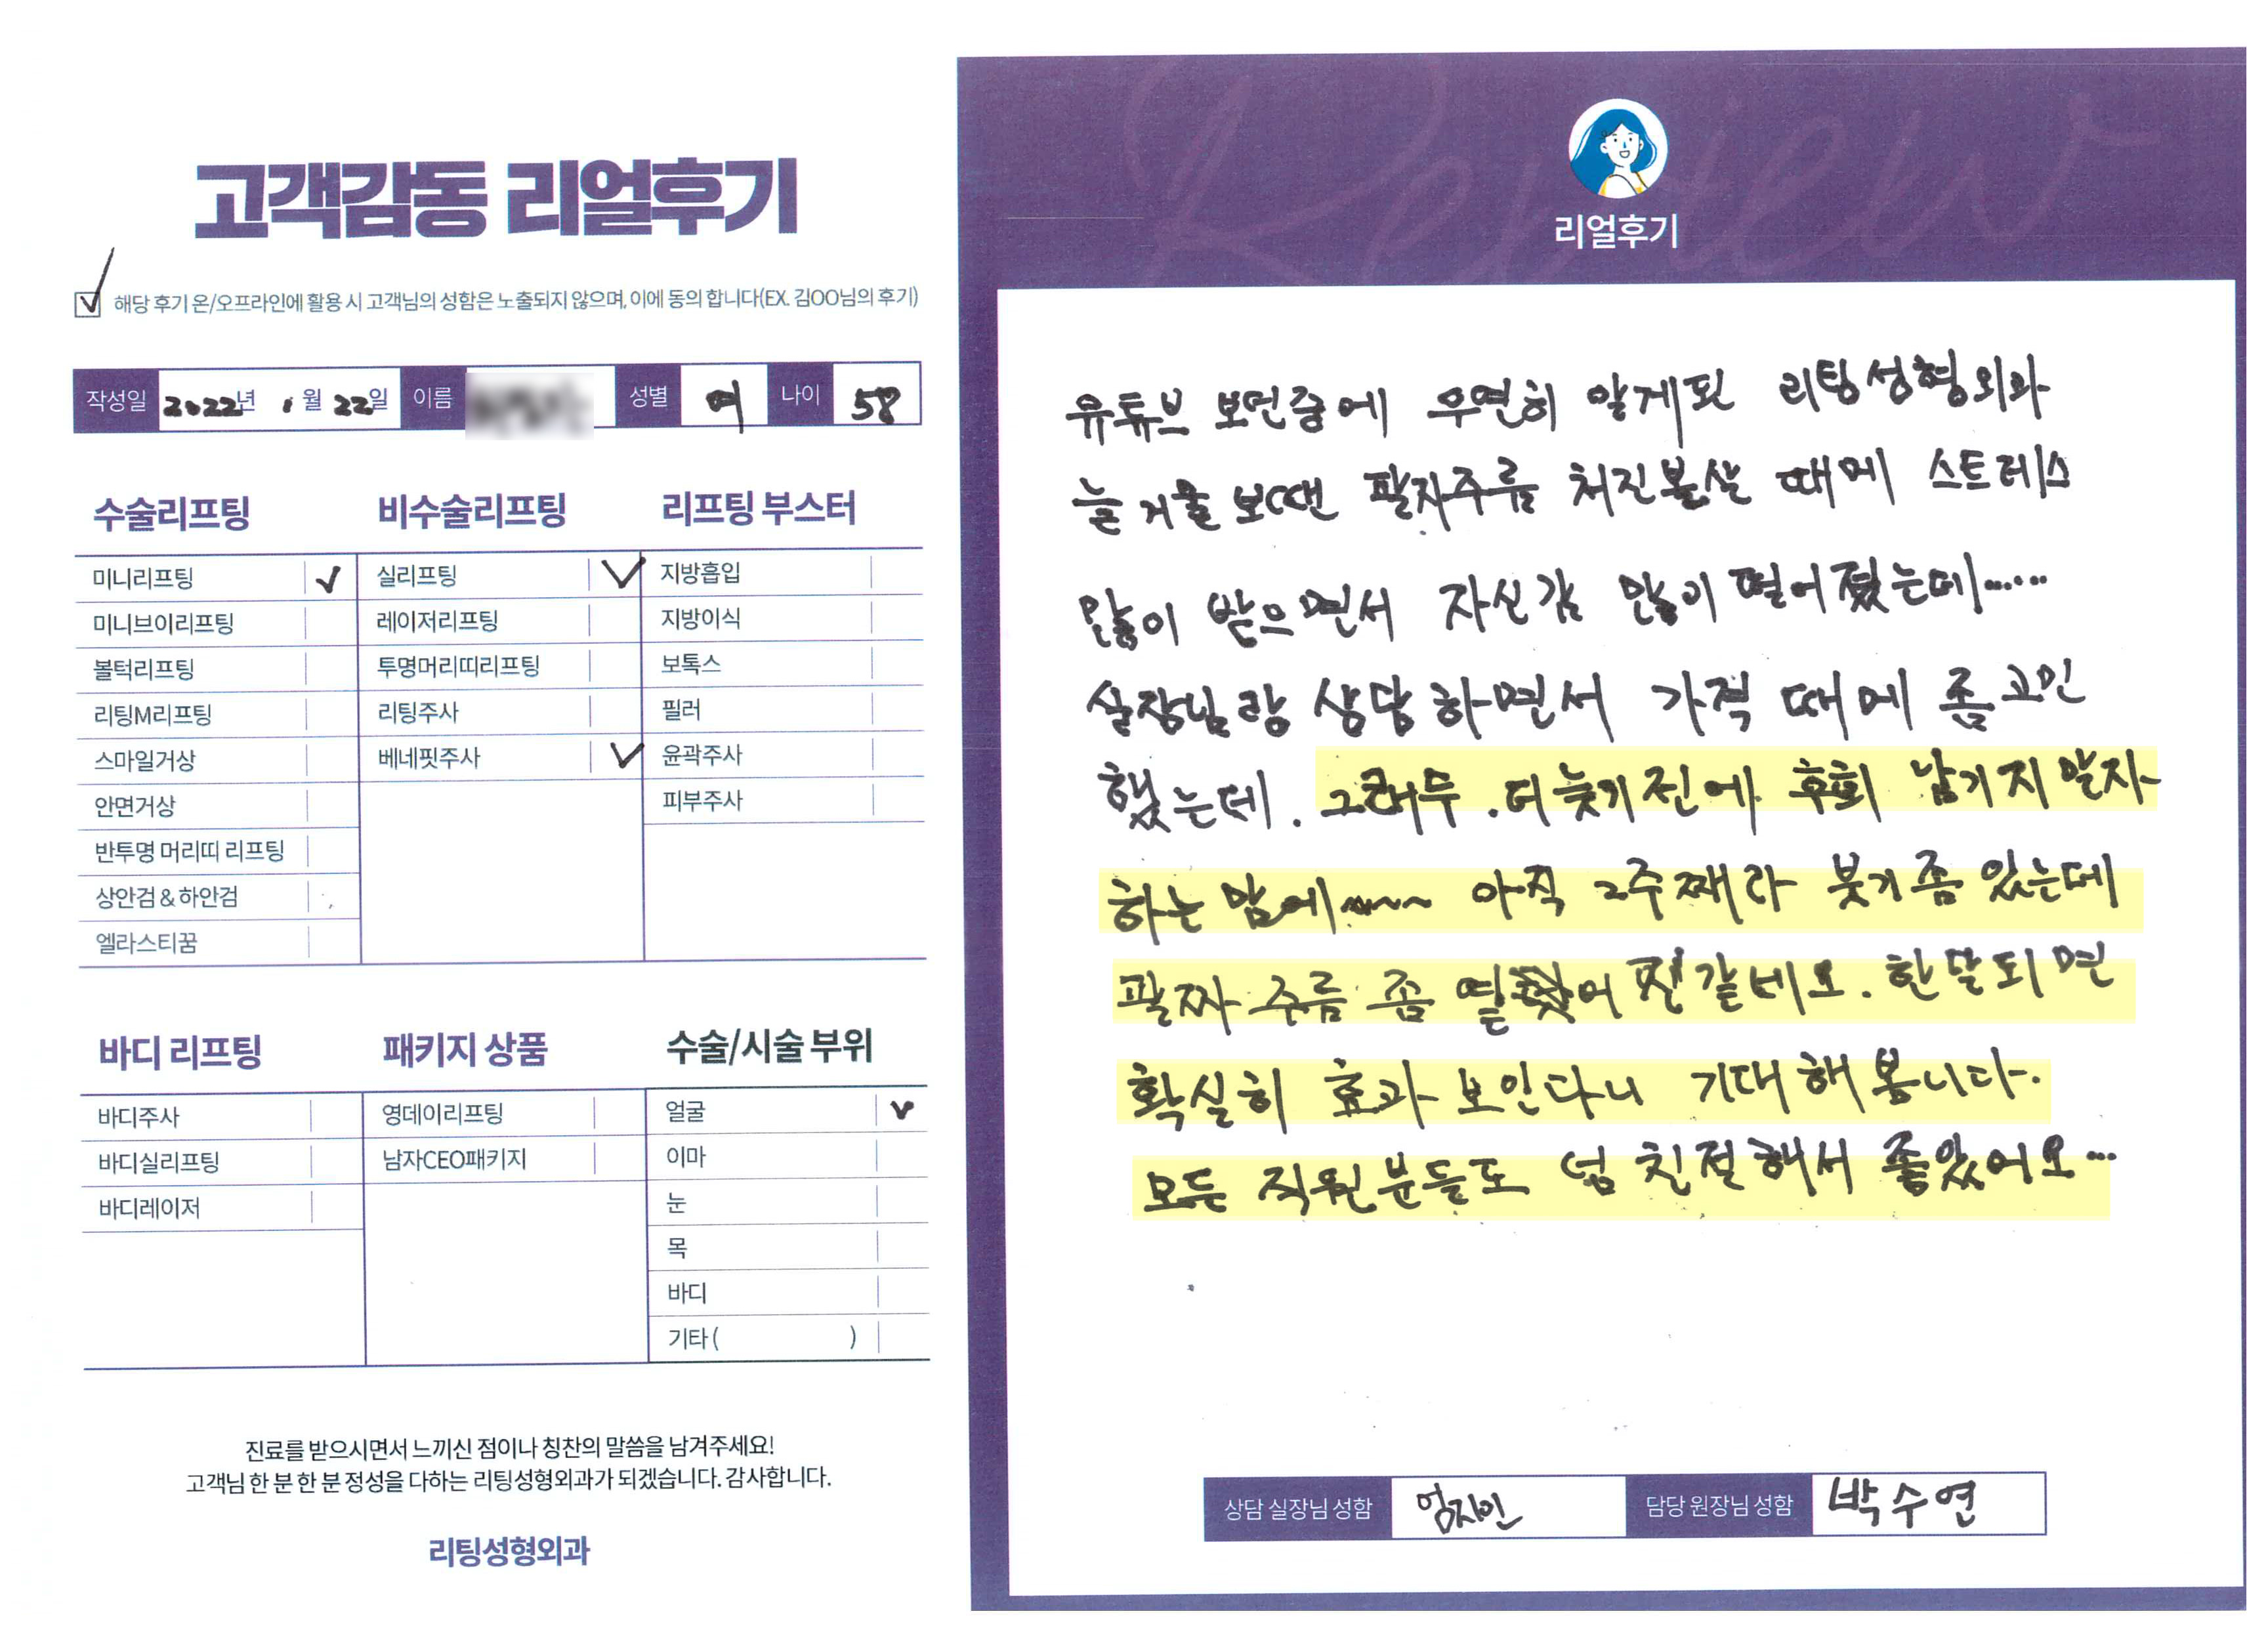 고객감동 리얼후기
해당 후기 온/오프라인에 활용 시 고객님의 성함은 노출되지 않으며, 이에 동의 합니다(EX. 김OO님의 후기)
작성일 2022년 1월 22일 이름 성별 여 나이 58
수술리프팅
미니리프팅
미니브이리프팅
볼턱리프팅
리팅M리프팅
스마일거상
안면거상
반투명 머리띠 리프팅
상안검 & 하안검
엘라스티꿈
비수술리프팅
실리프팅
레이저리프팅
투명머리띠리프팅
리팅주사
베네핏주사
리프팅 부스터
지방흡입
지방이식
보톡스
필러
윤곽주사
피부주사
바디 리프팅
바디주사
바디실리프팅
바디레이저
패키지 상품
영데이리프팅
남자CEO패키지
수술/시술 부위
얼굴
이마
눈
목
바디
기타 ( )
진료를 받으시면서 느끼신 점이나 칭찬의 말씀을 남겨주세요!
고객님 한 분 한 분 정성을 다하는 리팅성형외과가 되겠습니다. 감사합니다.
리팅성형외과
Review
리얼후기
유튜브 보던중에 우연히 알게된 리팅성형외과
늘 거울 보땐 팔자주름 처진볼살 때메 스트레스
많이 받으면서 자신감 많이 떨어졌는데......
실장님랑 상담하면서 가격 때메 좀 고민
했는데. 그래두 . 더 늦기전에 후회 남기지 말자
하는 맘에~~~~ 아직 2주째라 붓기좀 있는데
팔짜 주름 좀 옅어 진것같네요. 한달되면
확실히 효과 보인다니 기대해봅니다.
모든 직원분들도 넘 친절해서 좋았어요...
상담 실장님 성함 엄지인 담당 원장님 성함 박수연